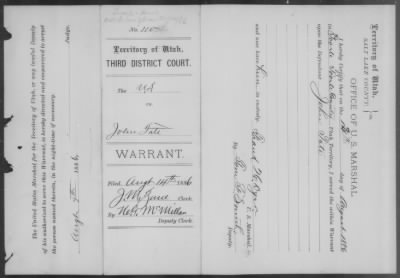 The United States Marshal for the Territory of Utah, or any lawful Deputy
of his authorized to serve this Warrant, is hereby directed and empowered to arrest
the person named therein, in the night-time if necessary.
Judge.
No.
Territory of Utah,
THIRD DISTRICT COURT.
The US
vs.
John Tate
WARRANT.
Filed Augt 14th 1886
Clerk.
By H.G. McMillan
Deputy Clerk.
Territory of Utah,
SALT LAKE COUNTY.
OFFICE OF U. S. MARSHAL.
I hereby Certify that on the 13th day of August 1886
in Utah Territory, I served the within Warrant
upon the Defendant John Tate
and now have him in custody.
U. S. Marshal,
By
Deputy.